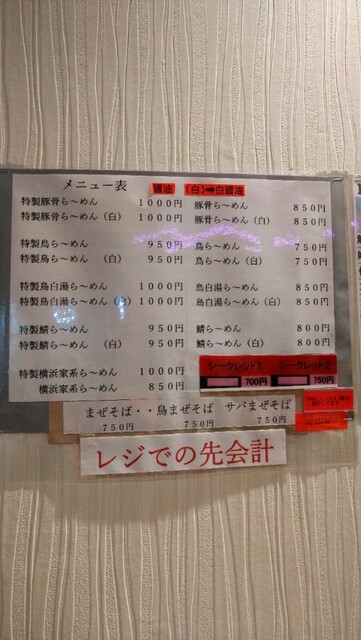 メニュー表 醤油 (白)➡白醤油
特製豚骨ら〜めん 1000円
特製豚骨ら〜めん(白) 1000円
特製鳥ら〜めん 950円
特製鳥ら〜めん(白) 950円
特製鳥白湯ら〜めん 1000円
特製鳥白湯ら〜めん(白) 1000円
特製鯖ら〜めん 950円
特製鯖ら〜めん(白) 950円
特製横浜家系ら〜めん 1000円
横浜家系ら〜めん 850円
豚骨ら〜めん 850円
豚骨ら〜めん(白) 850円
鳥ら〜めん 750円
鳥ら〜めん(白) 750円
鳥白湯ら〜めん 850円
鳥白湯ら〜めん(白) 850円
鯖ら〜めん 800円
鯖ら〜めん(白) 800円
シークレット1 シークレット2
700円 750円
まぜそば・・鳥まぜそば サバまぜそば
750円 750円 750円
レジでの先会計